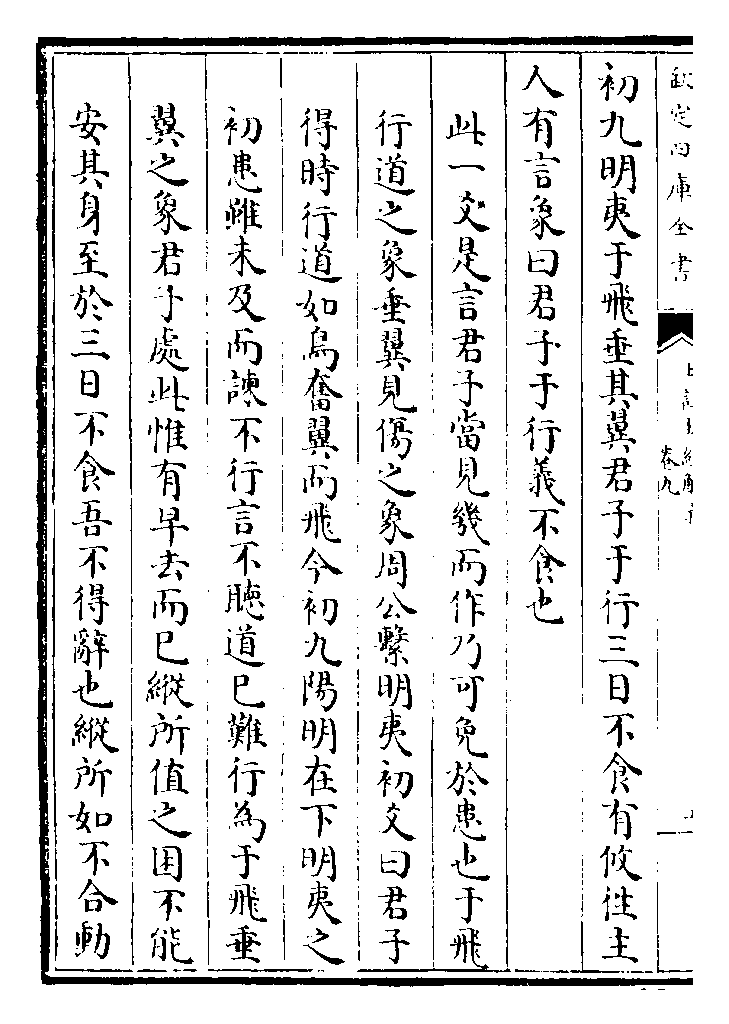 欽定四庫全書
卷九
初九明夷于飛垂其翼君子于行三日不食有攸往主
人有言象曰君子于行義不食也
此一爻是言君子當見幾而作乃可免於患也于飛
行道之象垂翼見傷之象周公繫明夷初爻曰君子
得時行道如鳥奮翼而飛今初九陽明在下明夷之
初患雖未及而諫不行言不聽道已難行為于飛垂
翼之象君子處此惟有早去而已縱所值之困不能
安其身至於三日不食吾不得辭也縱所如不合動